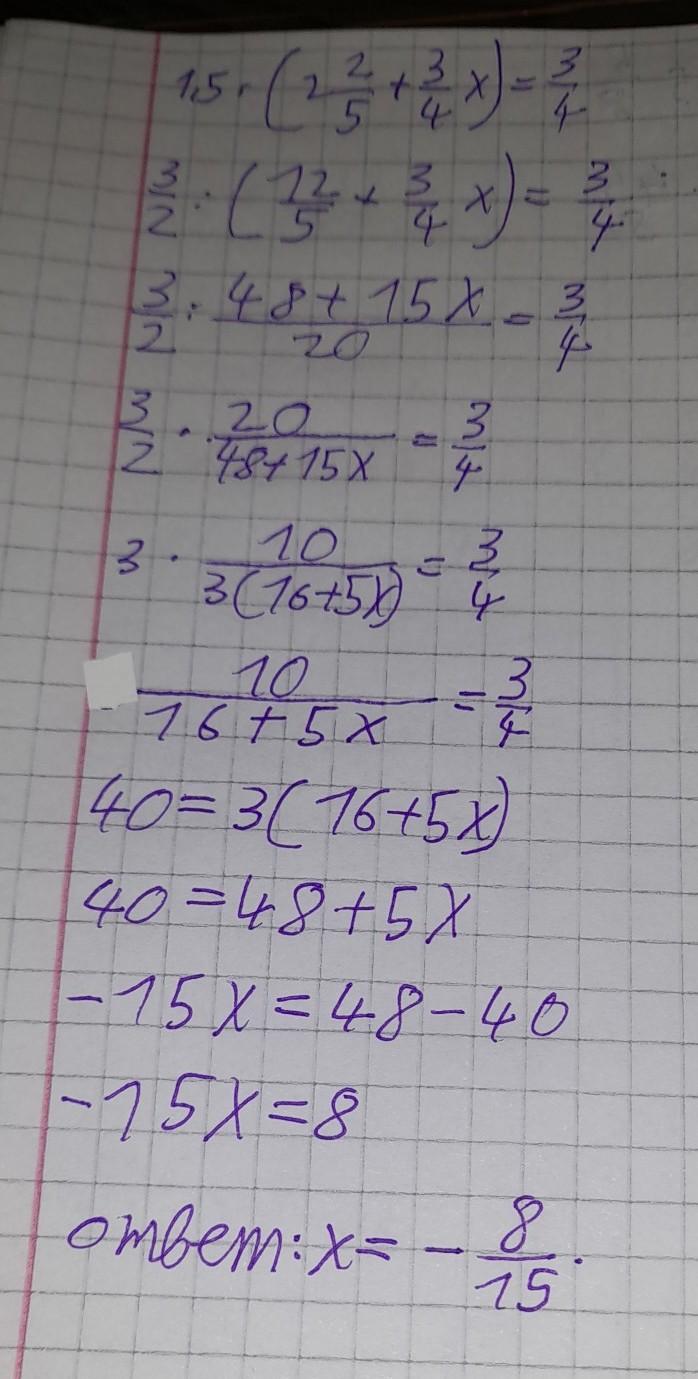 1,5 : (2 2/5 + 3/4 x) = 3/4
3/2 : (12/5 + 3/4 x) = 3/4
3/2 : (48+15x)/20 = 3/4
3/2 · 20/(48+15x) = 3/4
3 · 10/(3(16+5x)) = 3/4
10/(16+5x) = 3/4
40=3(16+5x)
40=48+5x
-15x=48-40
-15x=8
ответ: x= - 8/15.